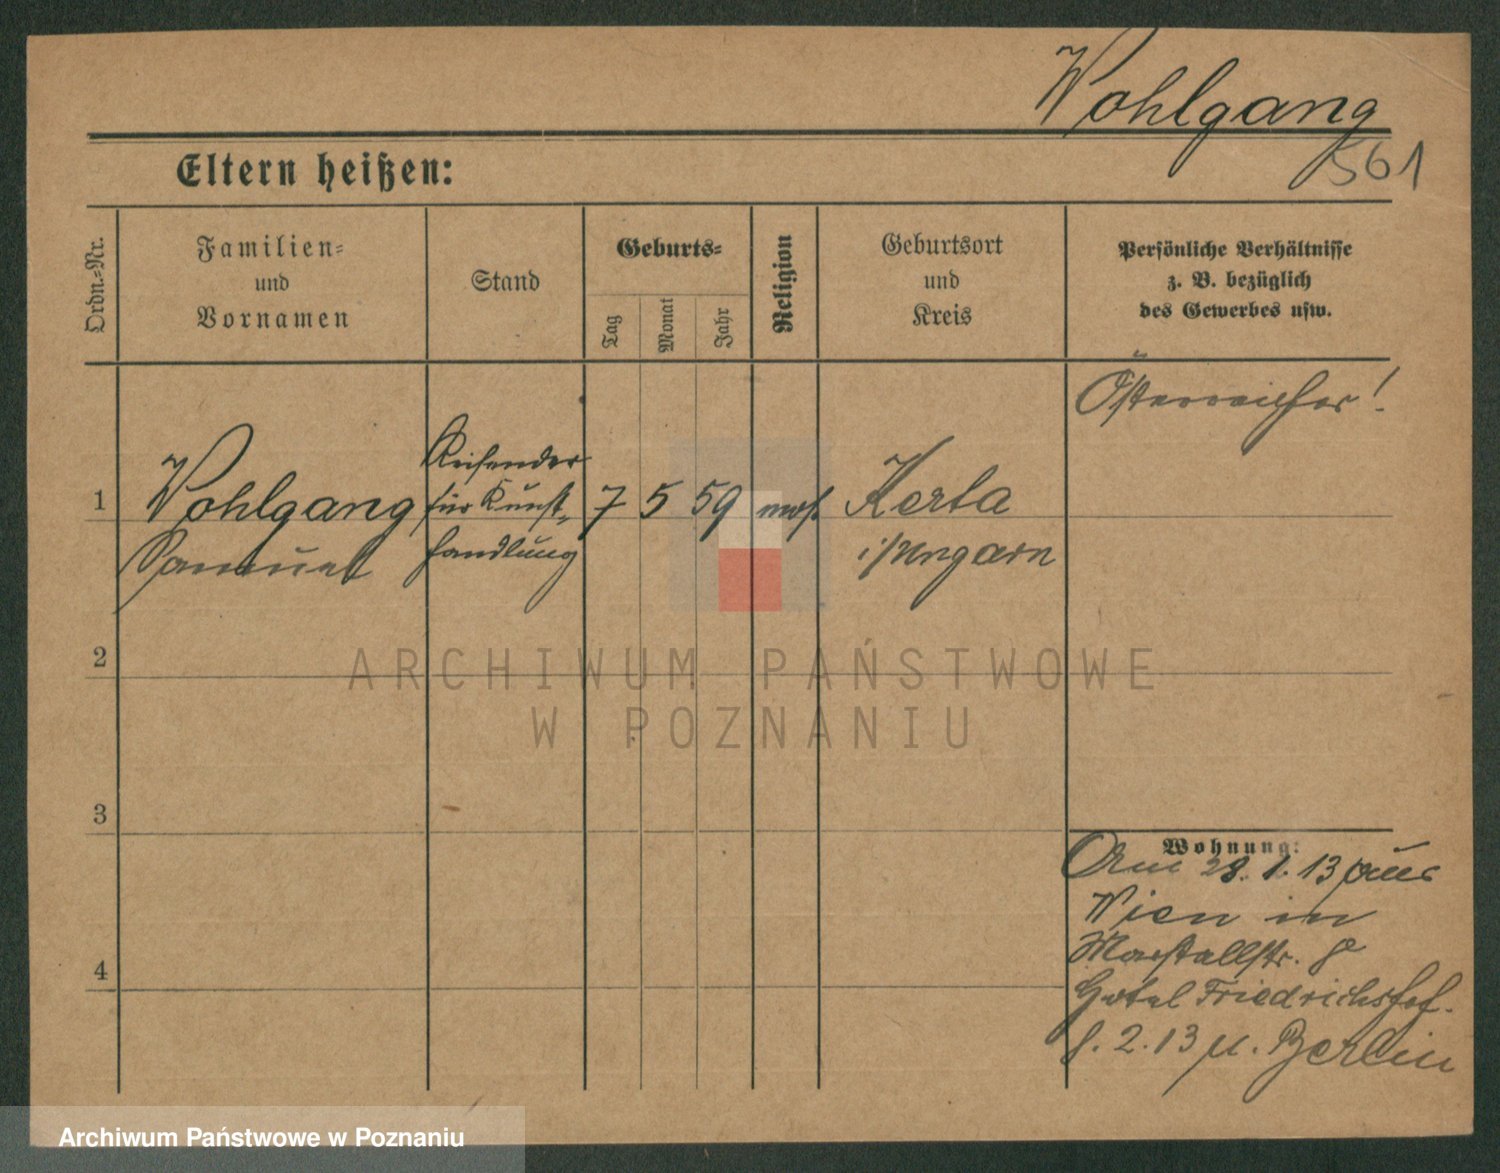 Wohlgang
561
Eltern heißen:
Ordn.-Nr.
Familien- und Vornamen
Stand
Geburts-
Tag
Monat
Jahr
Religion
Geburtsort und Kreis
Persönliche Verhältnisse z. B. bezüglich des Gewerbes usw.
Österreicher!
1
Wohlgang
Samuel
Reisender
für Kunst-
handlung
7
5
59
mos.
Kerta
i/Ungarn
2
3
4
Wohnung:
Am 28. 1. 13 aus
Wien in
Marstallstr. 8
Hotel Friedrichshof.
8. 2. 13 n. Berlin
ARCHIWUM PAŃSTWOWE
W POZNANIU
Archiwum Państwowe w Poznaniu